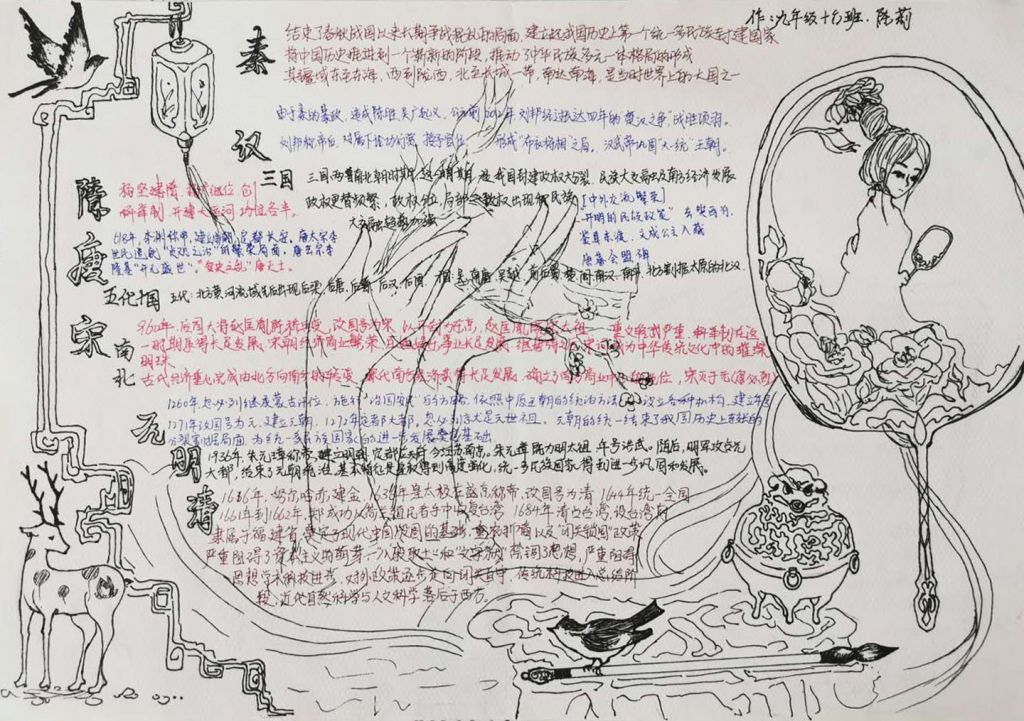 作:九年级十六班.陈莉
秦
结束了春秋战国以来长期争战混乱的局面,建立起我国历史上第一个统一多民族封建国家
将中国历史推进到一个崭新的阶段,推动了中华民族多元一体格局的形成
其疆域东至东海,西到陇西,北至长城一带,南达南海,是当时世界上的大国之一
汉
由于秦的暴政,造成陈胜吴广起义,公元前202年刘邦经过长达四年的楚汉之争,战胜项羽。
刘邦称帝后,对属下论功行赏,授予官位 形成"布衣将相"之局。汉武帝巩固"大一统"王朝。
三国
三国两晋南北朝时期,这一时期,是我国封建政权大分裂,民族大交融以及南方经济发展
政权更替频繁,
隋
杨坚建隋
开建大运河 功在各半。
唐
618年,李渊称帝,建立唐朝,定都长安。唐太宗李
世民造就"贞观之治"的繁荣局面。唐玄宗李
隆基"开元盛世"。"安史之乱"唐灭亡。
[中外交流繁荣]
"开明的民族政策"
鉴真东渡,文成公主入藏
唐蕃会盟
五代十国
五代:北方黄河流域先后出现后梁,后唐,后晋,后汉,后周
北方割据太原的北汉.
宋
南
北
960年,后周大将赵匡胤陈桥兵变,改国号为宋,以开封为东京,赵匡胤即宋太祖
明珠
古代经济重心完成由北方向南方的转变
元
1260年,忽必烈继承蒙古汗位
1271年改国号为元,建立元朝,1272年定都大都。忽必烈就是元世祖。元朝的统一结束了我国历史上较长的
分裂割据局面,为统一多民族国家的进一步发展奠定基础
明
1936年,朱元璋称帝,建立明朝,定都应天府,今江苏南京。朱元璋既为明太祖 年号洪武。随后,明军攻占元
大都,结束了元朝统治,基本特征是皇权得到高度强化,统一多民族国家得到进一步巩固和发展。
清
1616年,努尔哈赤建金,1636年皇太极在盛京称帝,改国号为清 1644年统一全国
1661年到1662年,郑成功从荷兰殖民者手中收复台湾,1684年清也台湾,设台湾府
隶属于福建省,奠定了现代中国版图的基础,重农抑商以及"闭关锁国"政策
严重阻碍了资本主义的萌芽 八股取士 和"文字狱"禁锢了思想,严重阻碍
思想学术科技进步,对外政策逐步走向闭关自守,传统科技进入总结阶
段,近代自然科学与人文科学落后于西方。